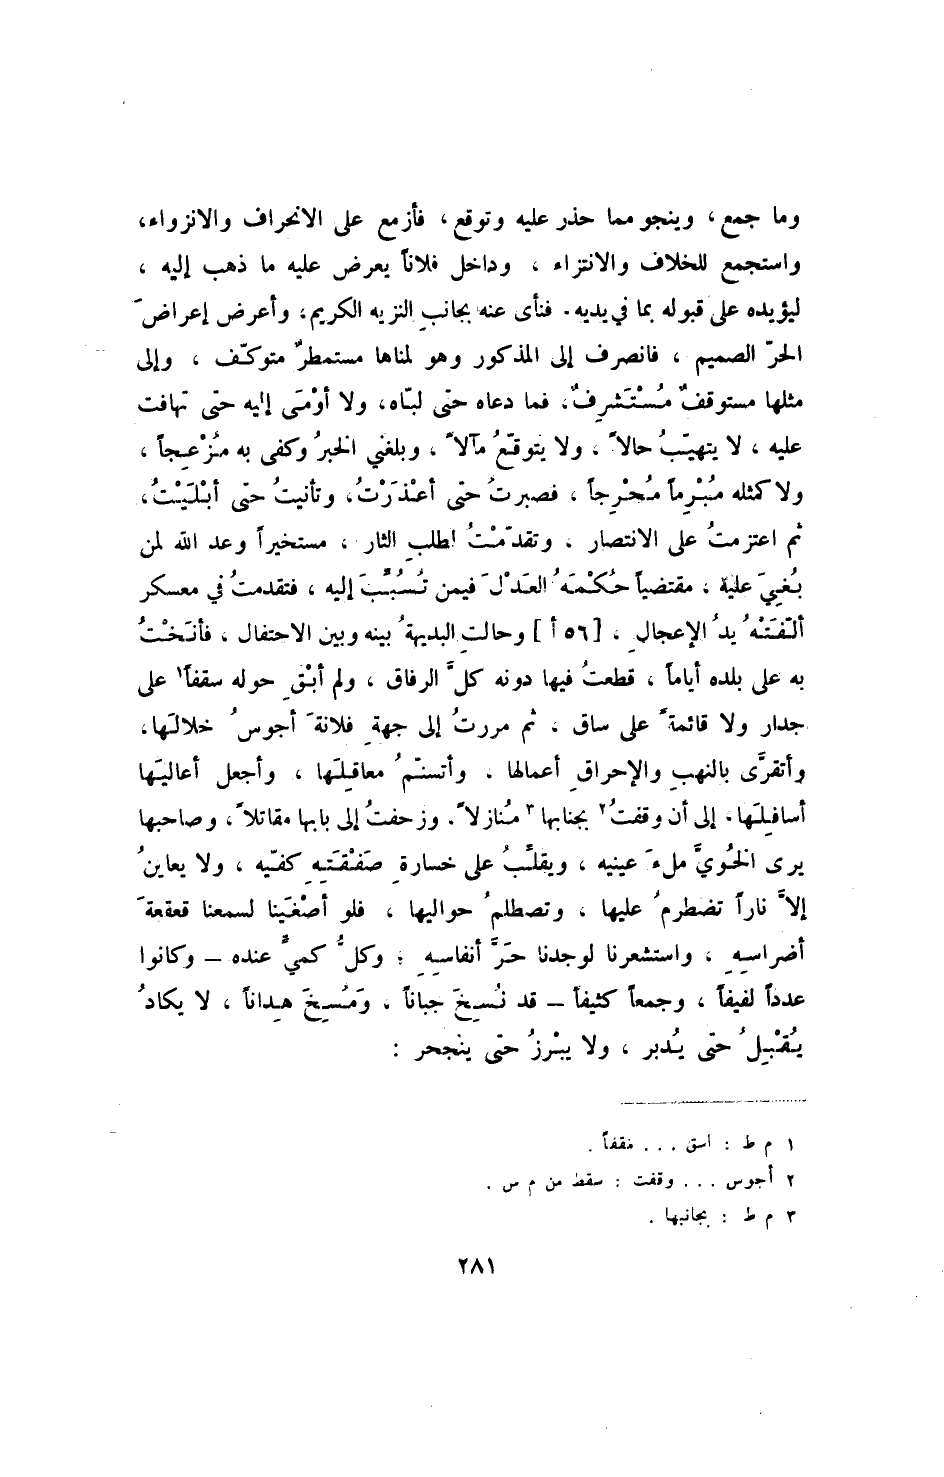 وما جمع ، وينجو مما حذر عليه وتوقع ، فأزمع على الانحراف والانزواء،
واستجمع للخلاف والانتزاء ، وداخل فلاناً يعرض عليه ما ذهب إليه ،
ليؤيده على قبوله بما في يديه . فنأى عنه بجانبِ النزيه الكريم ، وأعرض إعراضَ
الحرّ الصميم ، فانصرف إلى المذكور وهو لمناها مستمطرٌ متوكّف ، وإلى
مثلها مستوقفٌ مُسْتَشرِفٌ، فما دعاه حتى لبّاه، ولا أوْمَى إليه حتى تهافت
عليه ، لا يتهيّبُ حالاً ، ولا يتوقّعُ مآلاً ، وبلغني الخبرُ وكفى به مُزْعِجاً ،
ولا كمثله مُبْرِماً مُحْرِجاً ، فصبرتُ حتى أعْذَرْتُ، وتأنيتُ حتى أبْلَيْتُ،
ثم اعتزمتُ على الانتصار ، وتقدّمْتُ لطلبِ الثار ، مستخيراً وعد الله لمن
بُغِيَ عليه ، مقتضياً حُكْمَهُ العَدْلَ فيمن تُسُبِّبَ إليه ، فتقدمتُ في معسكر
ألّفَتْهُ يدُ الإعجالِ ، [٥٦ أ] وحالتِ البديهةُ بينه وبين الاحتفال ، فأنَخْتُ
به على بلده أياماً ، قطعتُ فيها دونه كلَّ الرفاق ، ولم أبْقِ حوله سقفاً١ على
جدار ولا قائمةً على ساق ، ثم مررتُ إلى جهةِ فلانةَ أجوسُ خلالَها،
وأتقرَّى بالنهبِ والإحراقِ أعمالها ، وأتسنّمُ معاقِلَها ، وأجعل أعاليَها
أسافِلَها، إلى أن وقفتُ٢ بجنابها٣ مُنازلاً ، وزحفتُ إلى بابها مقاتلاً ، وصاحبها
يرى الخُويَّ ملءَ عينيه ، ويقلّبُ على خسارةِ صَفْقَتِهِ كفّيه ، ولا يعاينُ
إلاَّ ناراً تضطرمُ عليها ، وتصطلمُ حواليها ، فلو أصْغَينا لسمعنا قعقعةَ
أضراسِهِ ، واستشعرنا لوجدنا حَرَّ أنفاسِهِ ؛ وكلُّ كميٍّ عنده – وكانوا
عدداً لفيفاً ، وجمعاً كثيفاً – قد نُسِخَ جباناً ، وَمُسِخَ هِداناً ، لا يكادُ
يُقْبِلُ حتى يُدبر ، ولا يبْرزُ حتى ينجحر :
١ م ط : اسق . . . نقفاً .
٢ أجوس . . . وقفت : سقط من م س .
٣ م ط : بجانبها .
٢٨١